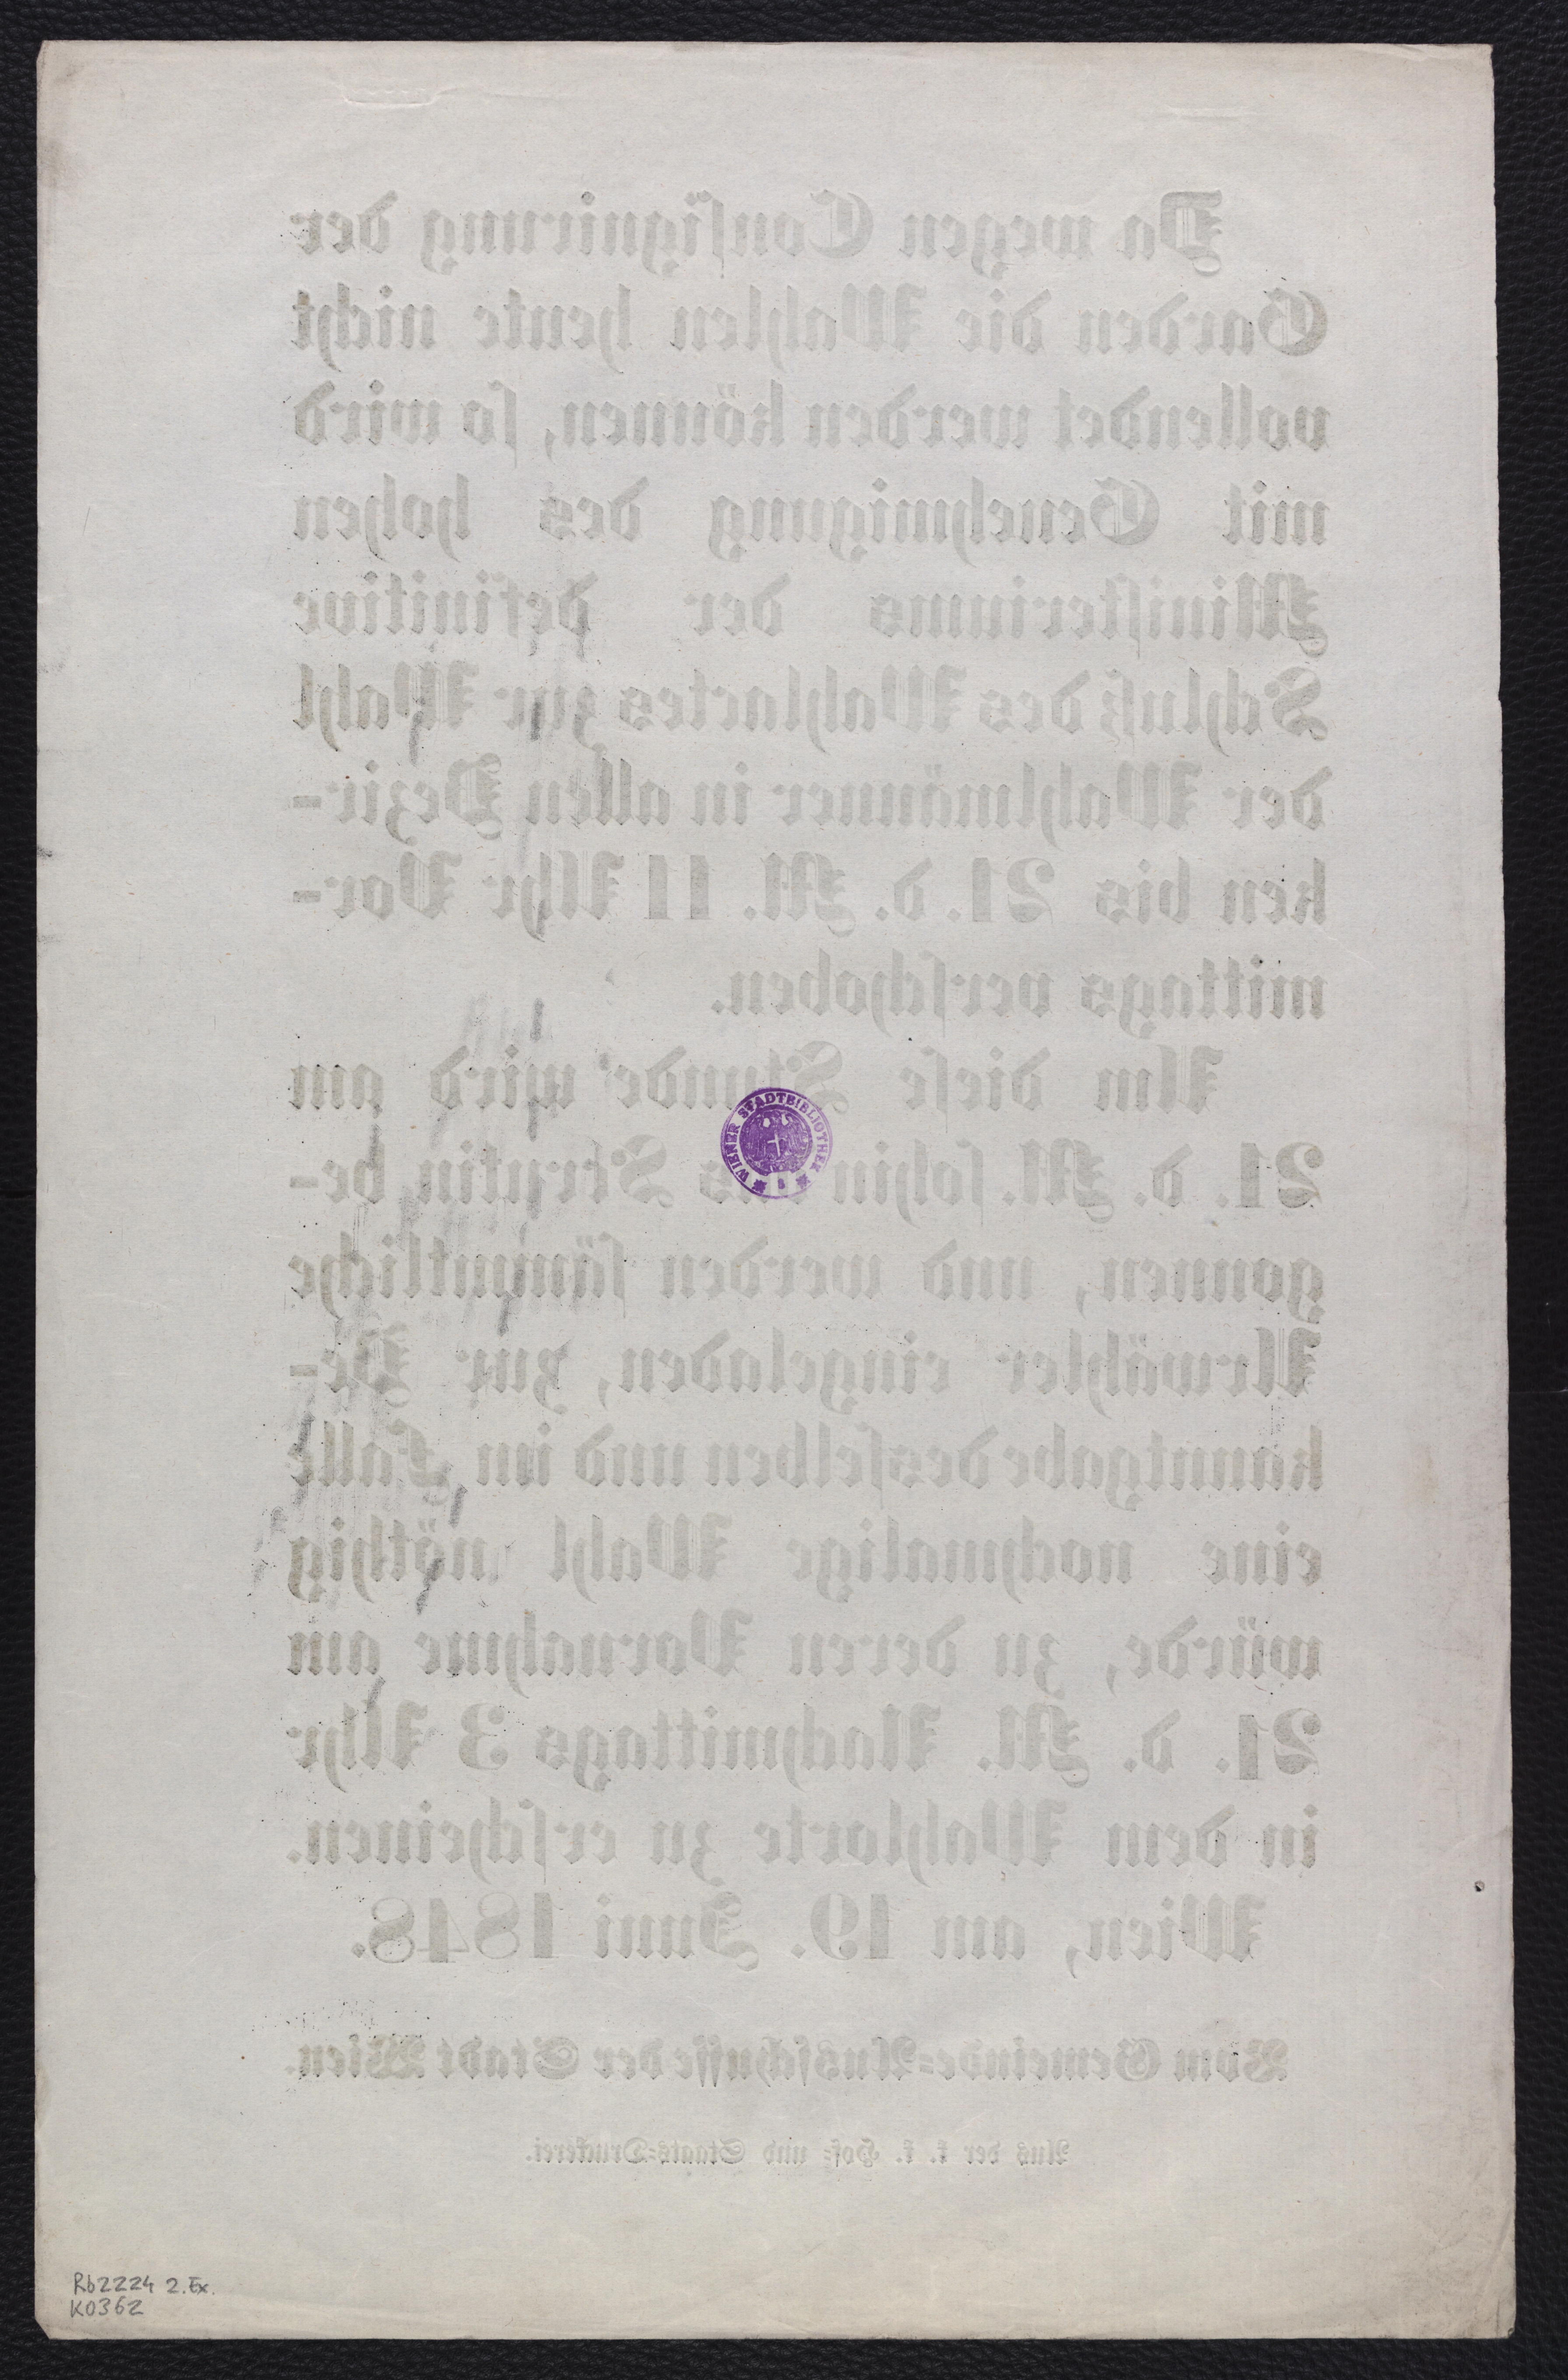 Da wegen Consignirung der
Garden die Wahlen heute nicht
vollendet werden können, so wird
mit Genehmigung des hohen
Ministeriums der definitive
Schluß des Wahlactes zur Wahl
der Wahlmänner in allen Bezir-
ken bis 21. d. M. 11 Uhr Vor-
mittags verschoben.
Um diese Stunde wird am
21. d. M. sohin das Scrutin be-
gonnen, und werden sämmtliche
Urwähler eingeladen, zur Be-
kanntgabe desselben und im Falle
eine nochmalige Wahl nöthig
würde, zu deren Vornahme am
21. d. M. Nachmittags 3 Uhr
in dem Wahlorte zu erscheinen.
Wien, am 19. Juni 1848.
Vom Gemeinde-Ausschusse der Stadt Wien.
Aus der k. k. Hof- und Staats-Druckerei.
WIENER STADTBIBLIOTHEK
Rb2224 2.Ex.
K0362